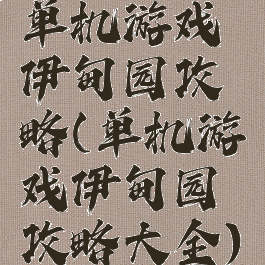 单机游戏
伊甸园攻
略(单机游
戏伊甸园
攻略大全)